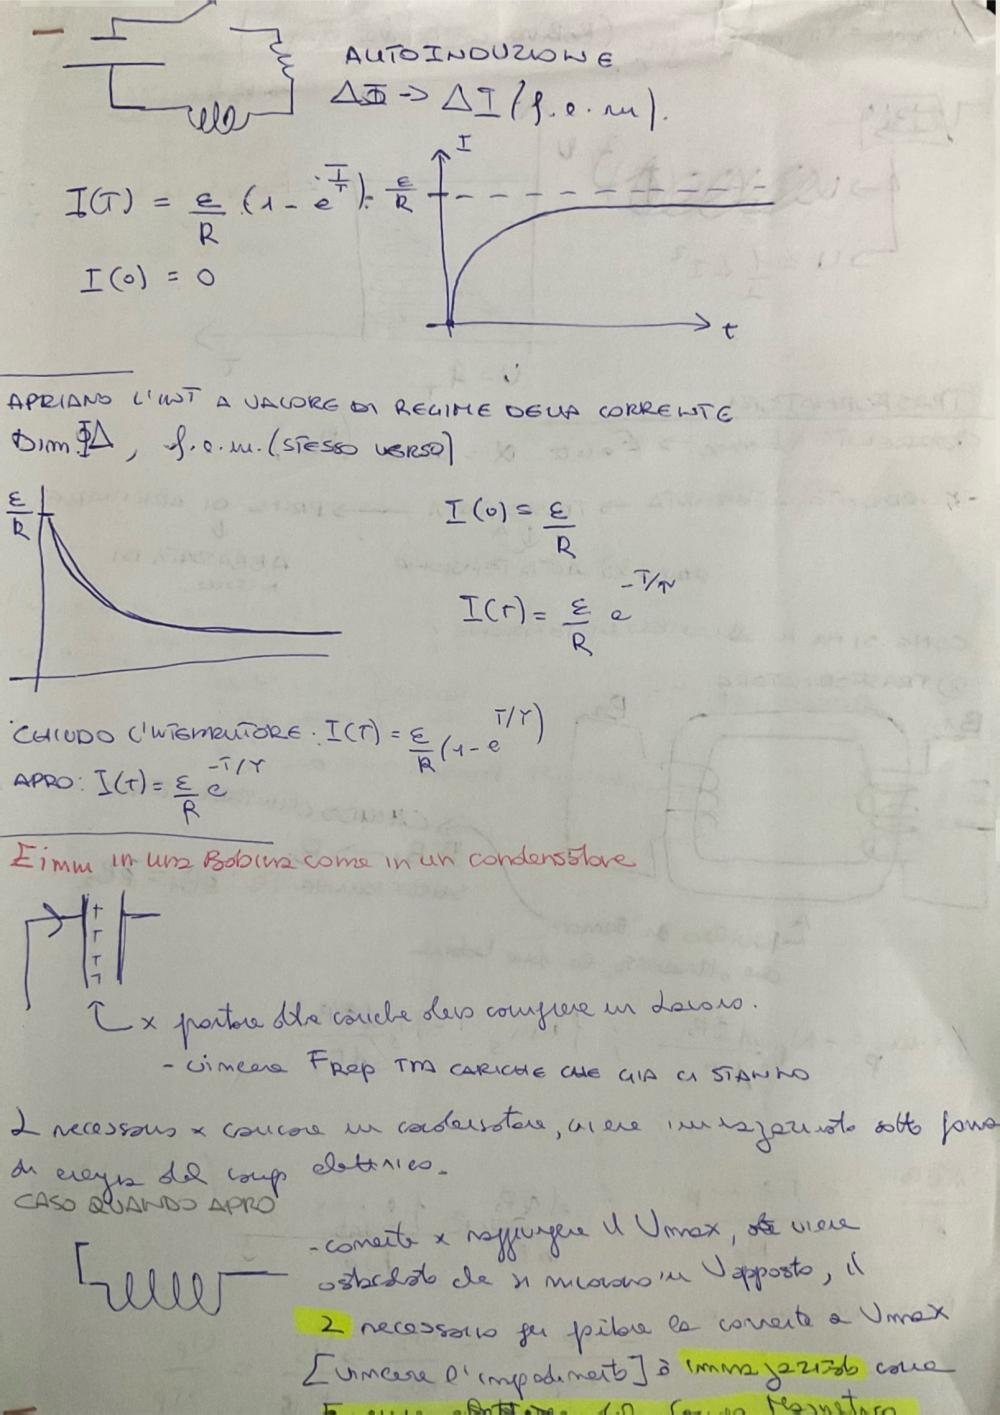 AUTOINDUZIONE
ΔΦ -> ΔI (f.e.m).
I
I(T) = ε/R (1 - e^-T/τ). ε/R
I(0) = 0
t
APRIAMO L'INT A VALORE DI REGIME DELLA CORRENTE
Dim ΦΔ, f.e.m. (STESSO VERSO)
ε/R
I(0) = ε/R
I(T) = ε/R e^-T/τ
CHIUDO L'INTERRUTTORE. I(T) = ε/R (1 - e^T/τ)
APRO: I(T) = ε/R e^-T/τ
E imm in una Bobina come in un condensatore
+
x portare altre cariche devo compiere un Lavoro.
- vincere FREP TRA CARICHE CHE GIA CI STANNO
L necessario x caricare un condensatore, viene immagazzinato sotto forma
di energia del campo elettrico.
CASO QUANDO APRO
- corrente x raggiungere il Vmax, viene
ostacolato da opposto, il
L necessario per la corrente a Vmax
[vincere l'impedimento] è immagazzinato come
del Campo Magnetico